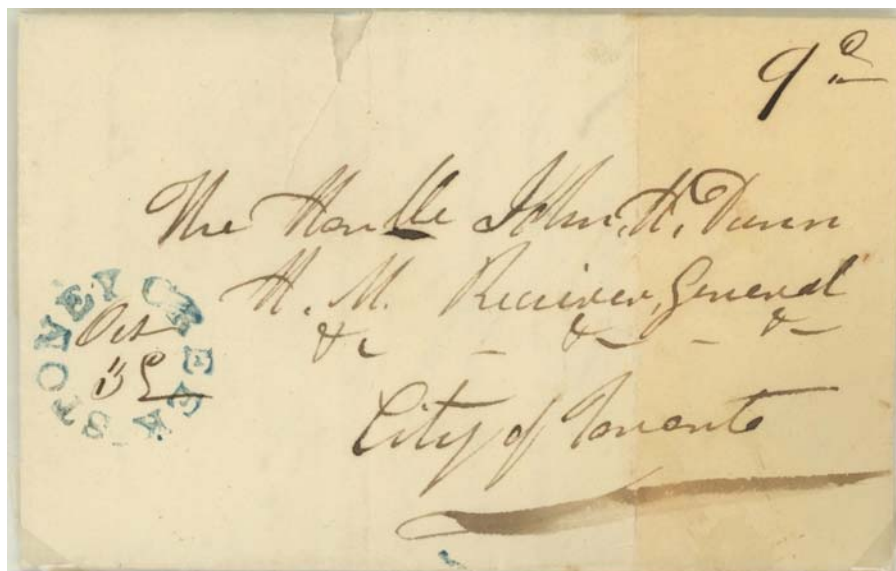 9d
The Honble John. H. Dunn
H. M. Receiver, General
&c - &c - &c
City of Toronto
STONEY CREEK
Oct